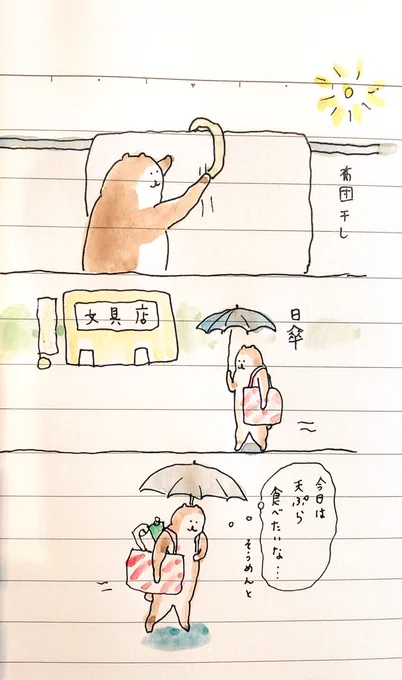 布団干し
文具店
日傘
今日は
天ぷら
食べたいな…
そうめんと